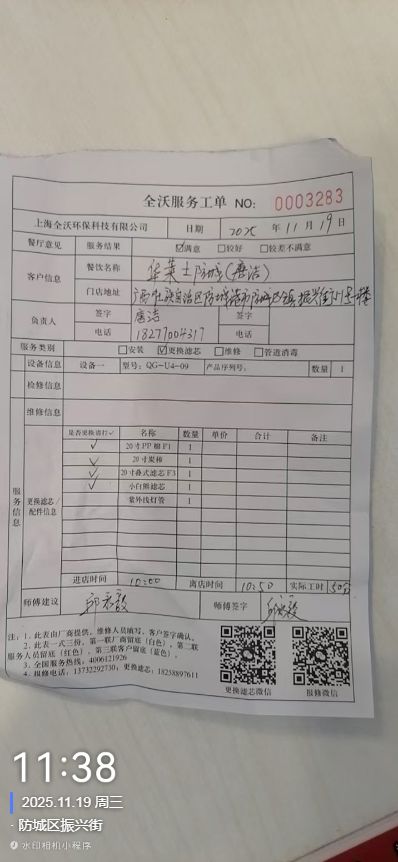 全沃服务工单 NO: 0003283
上海全沃环保科技有限公司 日期 2025 年 11 月 19 日
餐厅意见 服务结果 ☑满意 □较好 □较差不满意
客户信息 餐饮名称 华莱士防城(唐洁)
门店地址 广西壮族自治区防城港市防城区振兴街
负责人 签字 唐洁 签字
电话 18277004317 电话
服务类别 □安装 ☑更换滤芯 □维修 □管道消毒
设备信息 设备一 型号: QG-U4-09 产品序列号: 数量 1
检修信息
维修信息
服务信息 更换滤芯/配件信息
是否更换请打✓ 名称 数量 单价 合计 备注
✓ 20寸PP棉F1 1
✓ 20寸炭棒 1
✓ 20寸叠式滤芯F3 1
✓ 小白熊滤芯 1
紫外线灯管 1
进店时间 10:00 离店时间 10:50 实际工时 50分
师傅建议 师傅签字
注: 1. 此表由厂商提供, 维修人员填写, 客户签字确认。
2. 此表一式三份, 第一联厂商留底(白色), 第二联
服务人员留底(红色), 第三联客户留底(蓝色)。
3. 全国服务热线: 4006121926
4. 报修电话: 13732292730, 更换滤芯: 18258897611
更换滤芯微信 报修微信
11:38
2025.11.19 周三
· 防城区振兴街
水印相机小程序